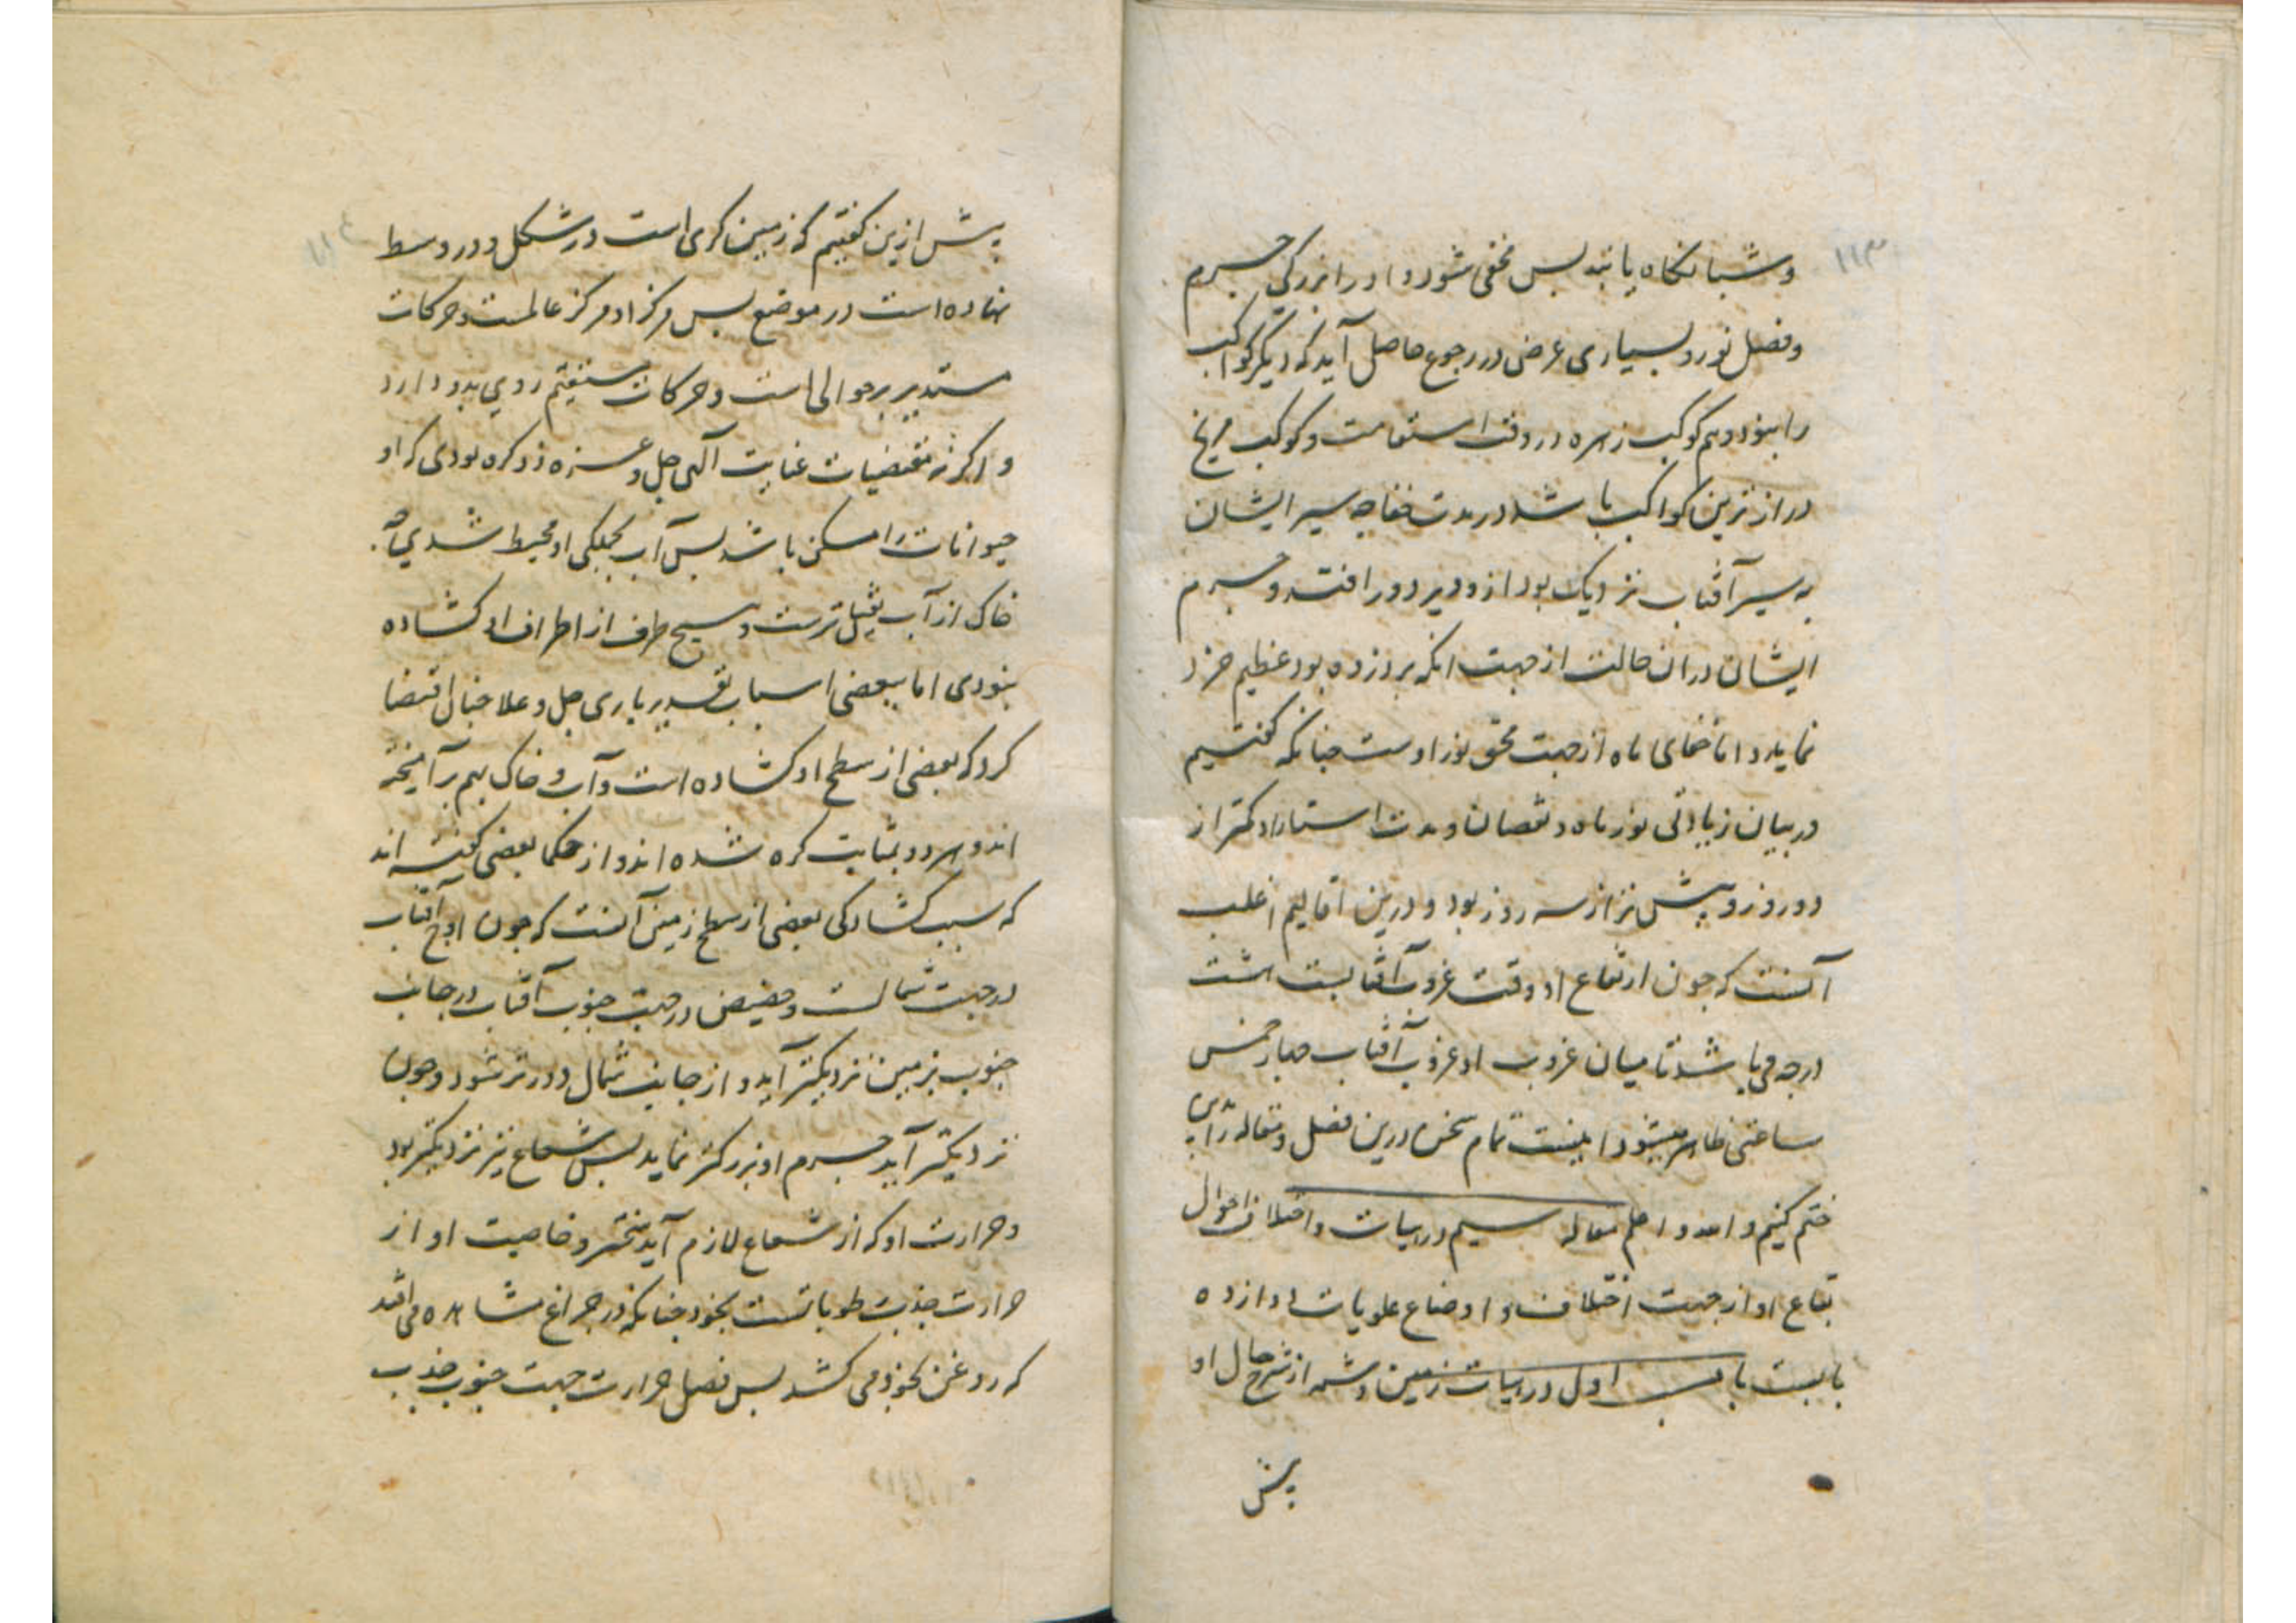 ۱۱۳
و شبانگاه یابند بس مخفی شود و او را بزرگی جرم
و فضل نور و بسیاری عرض در رجوع حاصل آید که دیگر کواکب
را نبود و هم کوکب زهره در وقت استقامت و کوکب مریخ
دراز ترین کواکب باشد در مدت خفا چه سیر ایشان
به سیر آفتاب نزدیک بود ازو دیر دور افتد و جرم
ایشان در آن حالت از جهت انکه بر ذروه بود عظیم خرد
نماید و اما خفای ماه از جهت محق نور اوست چنانکه گفتیم
در بیان زیادتی نور ماه و نقصان و مدت استتار او کمتر از
دو روز و بیش تر از سه روز بود و درین اقالیم اغلب
آنست که چون ارتفاع او وقت غروب آفتاب هشت
درجه می باشد تا میان غروب او و غروب آفتاب چهار خمس
ساعتی ظاهر میشود اینست تمام سخن درین فصل و مقاله را بدین
ختم کنیم و الله اعلم مقاله سیم در هیات و اختلاف احوال
بقاع او از جهت اختلاف اوضاع علویات و دوازده
بابست باب اول در هیات زمین و شمه از شرح حال او
پیش
۱۱٤
پیش ازین گفتیم که زمین کری است در شکل و در وسط
نهاده است در موضع بس مرکز او مرکز عالمست و حرکات
مستدیر بر حوالی است و حرکات مستقیم روی بدو دارد
و اگر نه مقتضیات عنایت آلهی جل و عز ذکره بودی که او
حیوانات را مسکن باشد بس آب بجملگی او محیط شدی چه
خاک از آب ثقیل ترست و هیچ طرف از اطراف او گشاده
نبودی اما ببعضی اسباب تقدیر باری جل و علا چنان اقتضا
کرد که بعضی از سطح او گشاده است و آب و خاک بهم بر آمیخته
اند و هر دو بمثابت کره شده اند و از حکما بعضی گفته اند
که سبب گشادگی بعضی از سطح زمین آنست که چون اوج آفتاب
در جهت شمالست و حضیض در جهت جنوب آفتاب در جانب
جنوب بزمین نزدیکتر آید و از جانب شمال دورتر شود و چون
نزدیکتر آید جرم او بزرگتر نماید بس شعاع نیز نزدیکتر بود
و حرارت او که از شعاع لازم آید سختتر و خاصیت او از
حرارت جذب رطوباتست بخود چنانکه در چراغ مشاهده می افتد
که روغن بخود می کشد بس فصل حرارت جهت جنوب جذب